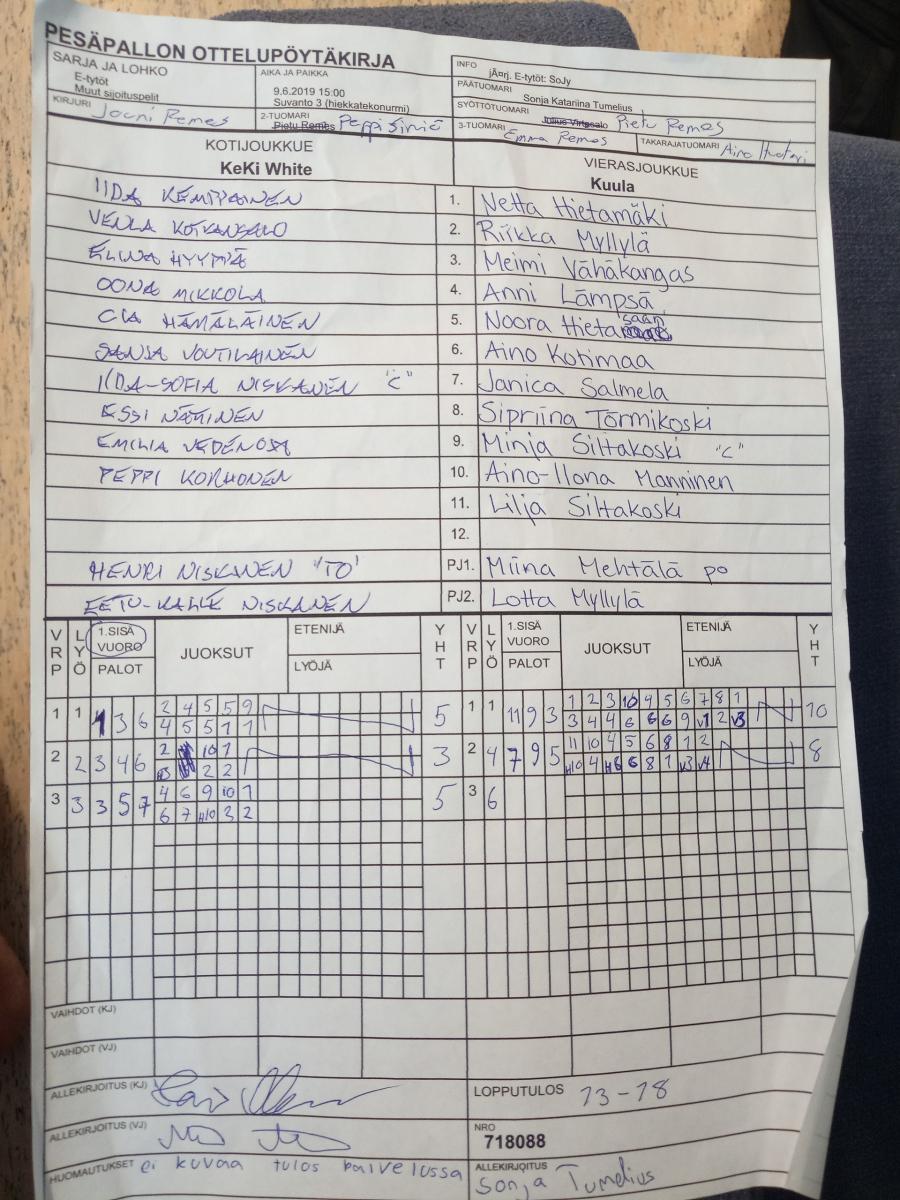 PESÄPALLON OTTELUPÖYTÄKIRJA
SARJA JA LOHKO
E-tytöt
Muut sijoituspelit
AIKA JA PAIKKA
9.6.2019 15:00
Suvanto 3 (hiekkatekonurmi)
INFO
jÃ¤rj. E-tytöt: SoJy
PÄÄTUOMARI
Sonja Katariina Tumelius
KIRJURI Jouni Remes
2-TUOMARI
Pietu Remes Peppi Siniö
SYÖTTÖTUOMARI
Julius Virtasalo Pietu Remes
3-TUOMARI
Emma Remes
TAKARAJATUOMARI Aino Huotari
KOTIJOUKKUE
KeKi White
VIERASJOUKKUE
Kuula
IIDA KEMPPAINEN 1. Netta Hietamäki
VENLA KOIKANSALO 2. Riikka Myllylä
ELINA HYYPPÄ 3. Meimi Vähäkangas
OONA MIKKOLA 4. Anni Lämpsä
CIA HÄMÄLÄINEN 5. Noora Hietasaari
SANJA VOUTILAINEN 6. Aino Kotimaa
IIDA-SOFIA NISKANEN "C" 7. Janica Salmela
ESSI NÄTTINEN 8. Sipriina Tormikoski
EMILIA VEDENOJA 9. Minja Siltakoski "C"
PEPPI KORHONEN 10. Aino-Ilona Manninen
11. Lilja Siltakoski
12.
HENRI NISKANEN "TO" PJ1. Miina Mehtälä po
EETU-KALLE NISKANEN PJ2. Lotta Myllylä
VRP LYÖ 1.SISÄ VUORO PALOT JUOKSUT ETENIJÄ LYÖJÄ YHT VRP LYÖ 1.SISÄ VUORO PALOT JUOKSUT ETENIJÄ LYÖJÄ YHT
2 4 5 5 9 1 2 3 10 4 5 6 7 8 1
1 1 1 3 6 5 1 1 11 9 3 10
4 5 5 1 1 3 4 4 6 6 6 9 v1 2 v3
2 10 1 11 10 4 5 6 8 1 2
2 2 3 4 6 3 2 4 7 9 5 8
H3 2 2 H10 4 H6 6 8 1 v3 v4
4 6 9 10 1
3 3 3 5 7 5 3 6
6 7 H10 3 2
VAIHDOT (KJ)
VAIHDOT (VJ)
ALLEKIRJOITUS (KJ)
LOPPUTULOS 13-18
ALLEKIRJOITUS (VJ)
NRO
718088
HUOMAUTUKSET ei kuvaa tulos palvelussa
ALLEKIRJOITUS
Sonja Tumelius